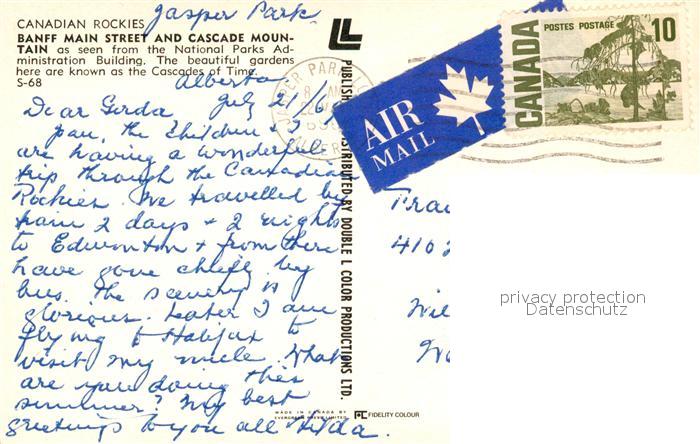 Jasper Park
CANADIAN ROCKIES
BANFF MAIN STREET AND CASCADE MOUN-
TAIN as seen from the National Parks Ad-
ministration Building. The beautiful gardens
here are known as the Cascades of Time.
S-68
Alberta
July 21/6
Dear Gerda
the children & I
are having a wonderful
trip through the Canadian
Rockies. We travelled by
train 2 days & 2 nights
to Edmonton & from there
have gone chiefly by
bus. The scenery is
glorious. Later I am
flying to Halifax to
visit my uncle. What
are you doing this
summer? My best
greetings to you all Hilda.
LL
PUBLISHED DISTRIBUTED BY DOUBLE L COLOR PRODUCTIONS LTD.
JASPER PARK
AIR
MAIL
CANADA
POSTES POSTAGE
10
Frau
4102
Wil
privacy protection
Datenschutz
MADE IN CANADA BY
EVERGREEN PRESS LIMITED
FIDELITY COLOUR